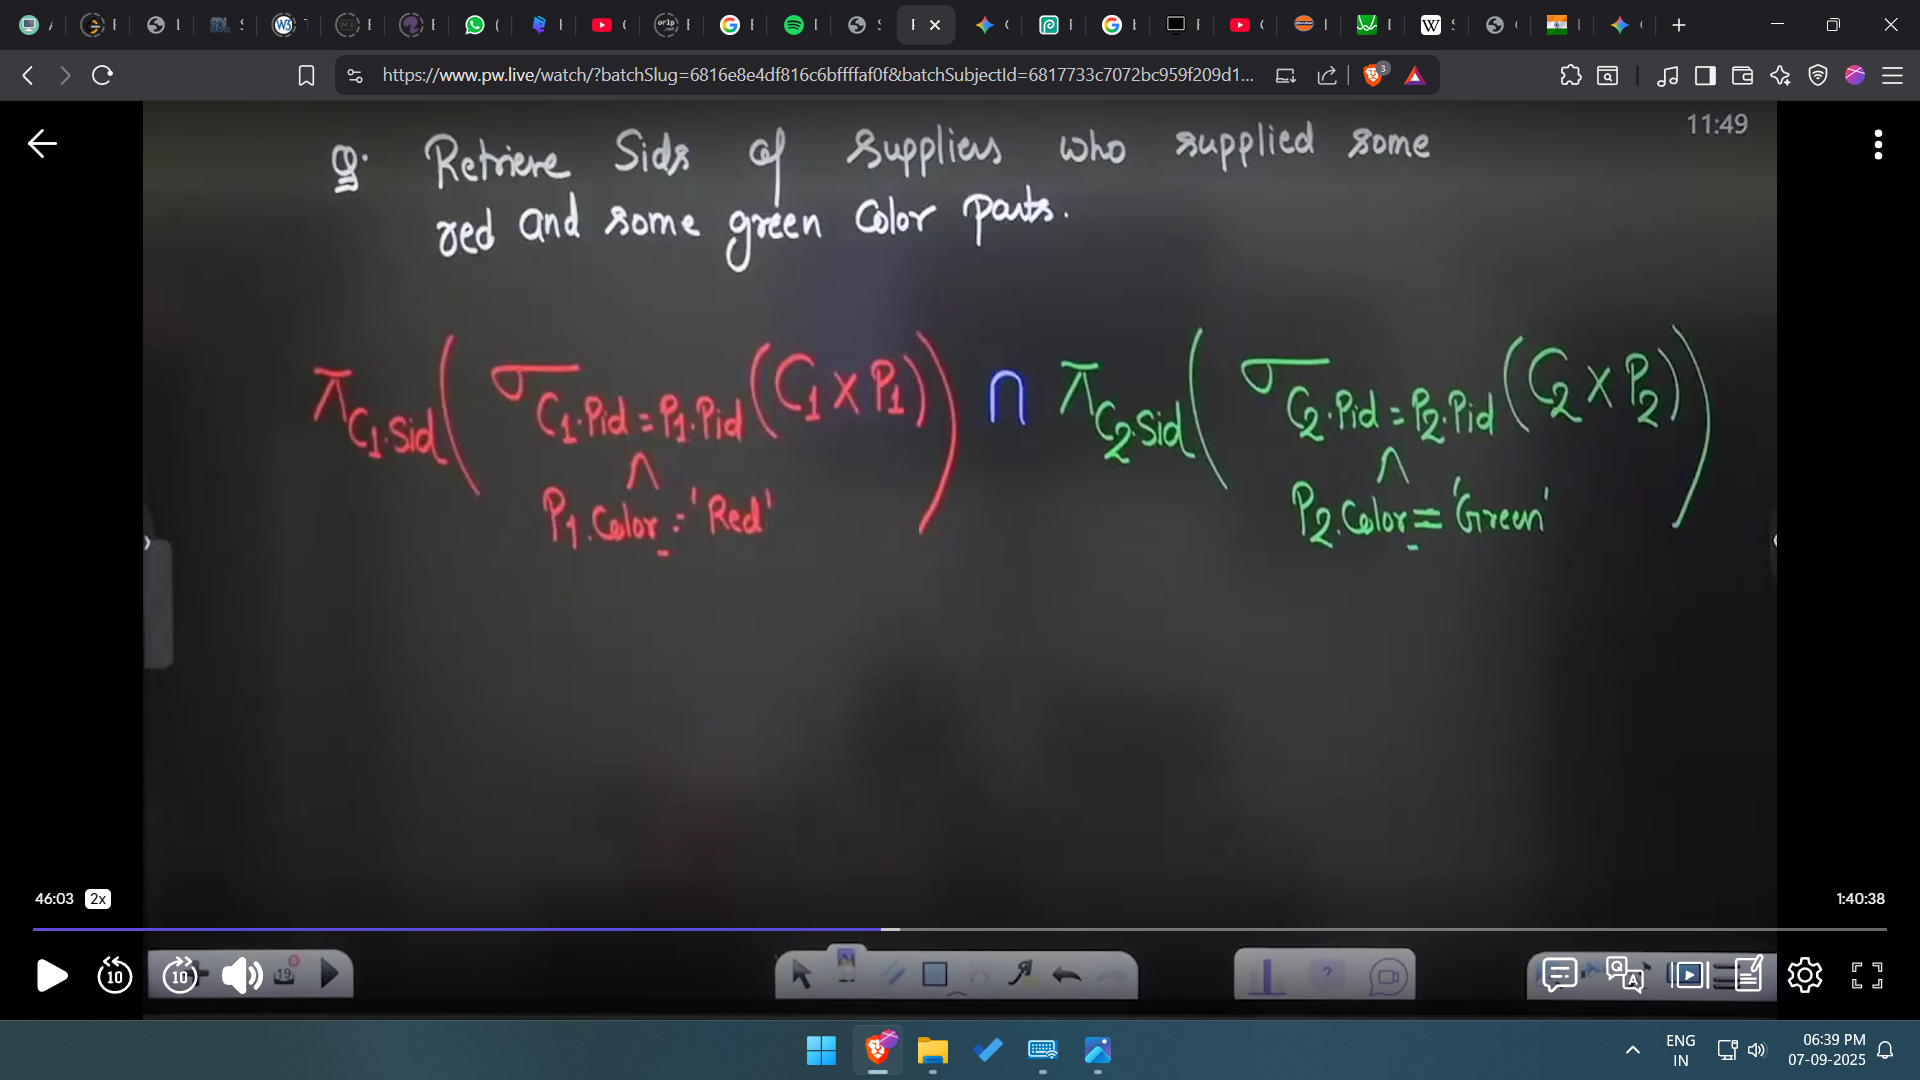 https://www.pw.live/watch/?batchSlug=6816e8e4df816c6bffffaf0f&batchSubjectId=6817733c7072bc959f209d1...
3
11:49
Q. Retrieve Sids of suppliers who supplied some
red and some green Color parts.
π C1.Sid ( σ C1.Pid = P1.Pid (C1 × P1) ) ∩ π C2.Sid ( σ C2.Pid = P2.Pid (C2 × P2) )
∧ ∧
P1.Color = 'Red' P2.Color = 'Green'
46:03 2x 1:40:38
10 10 19
ENG
IN
06:39 PM
07-09-2025